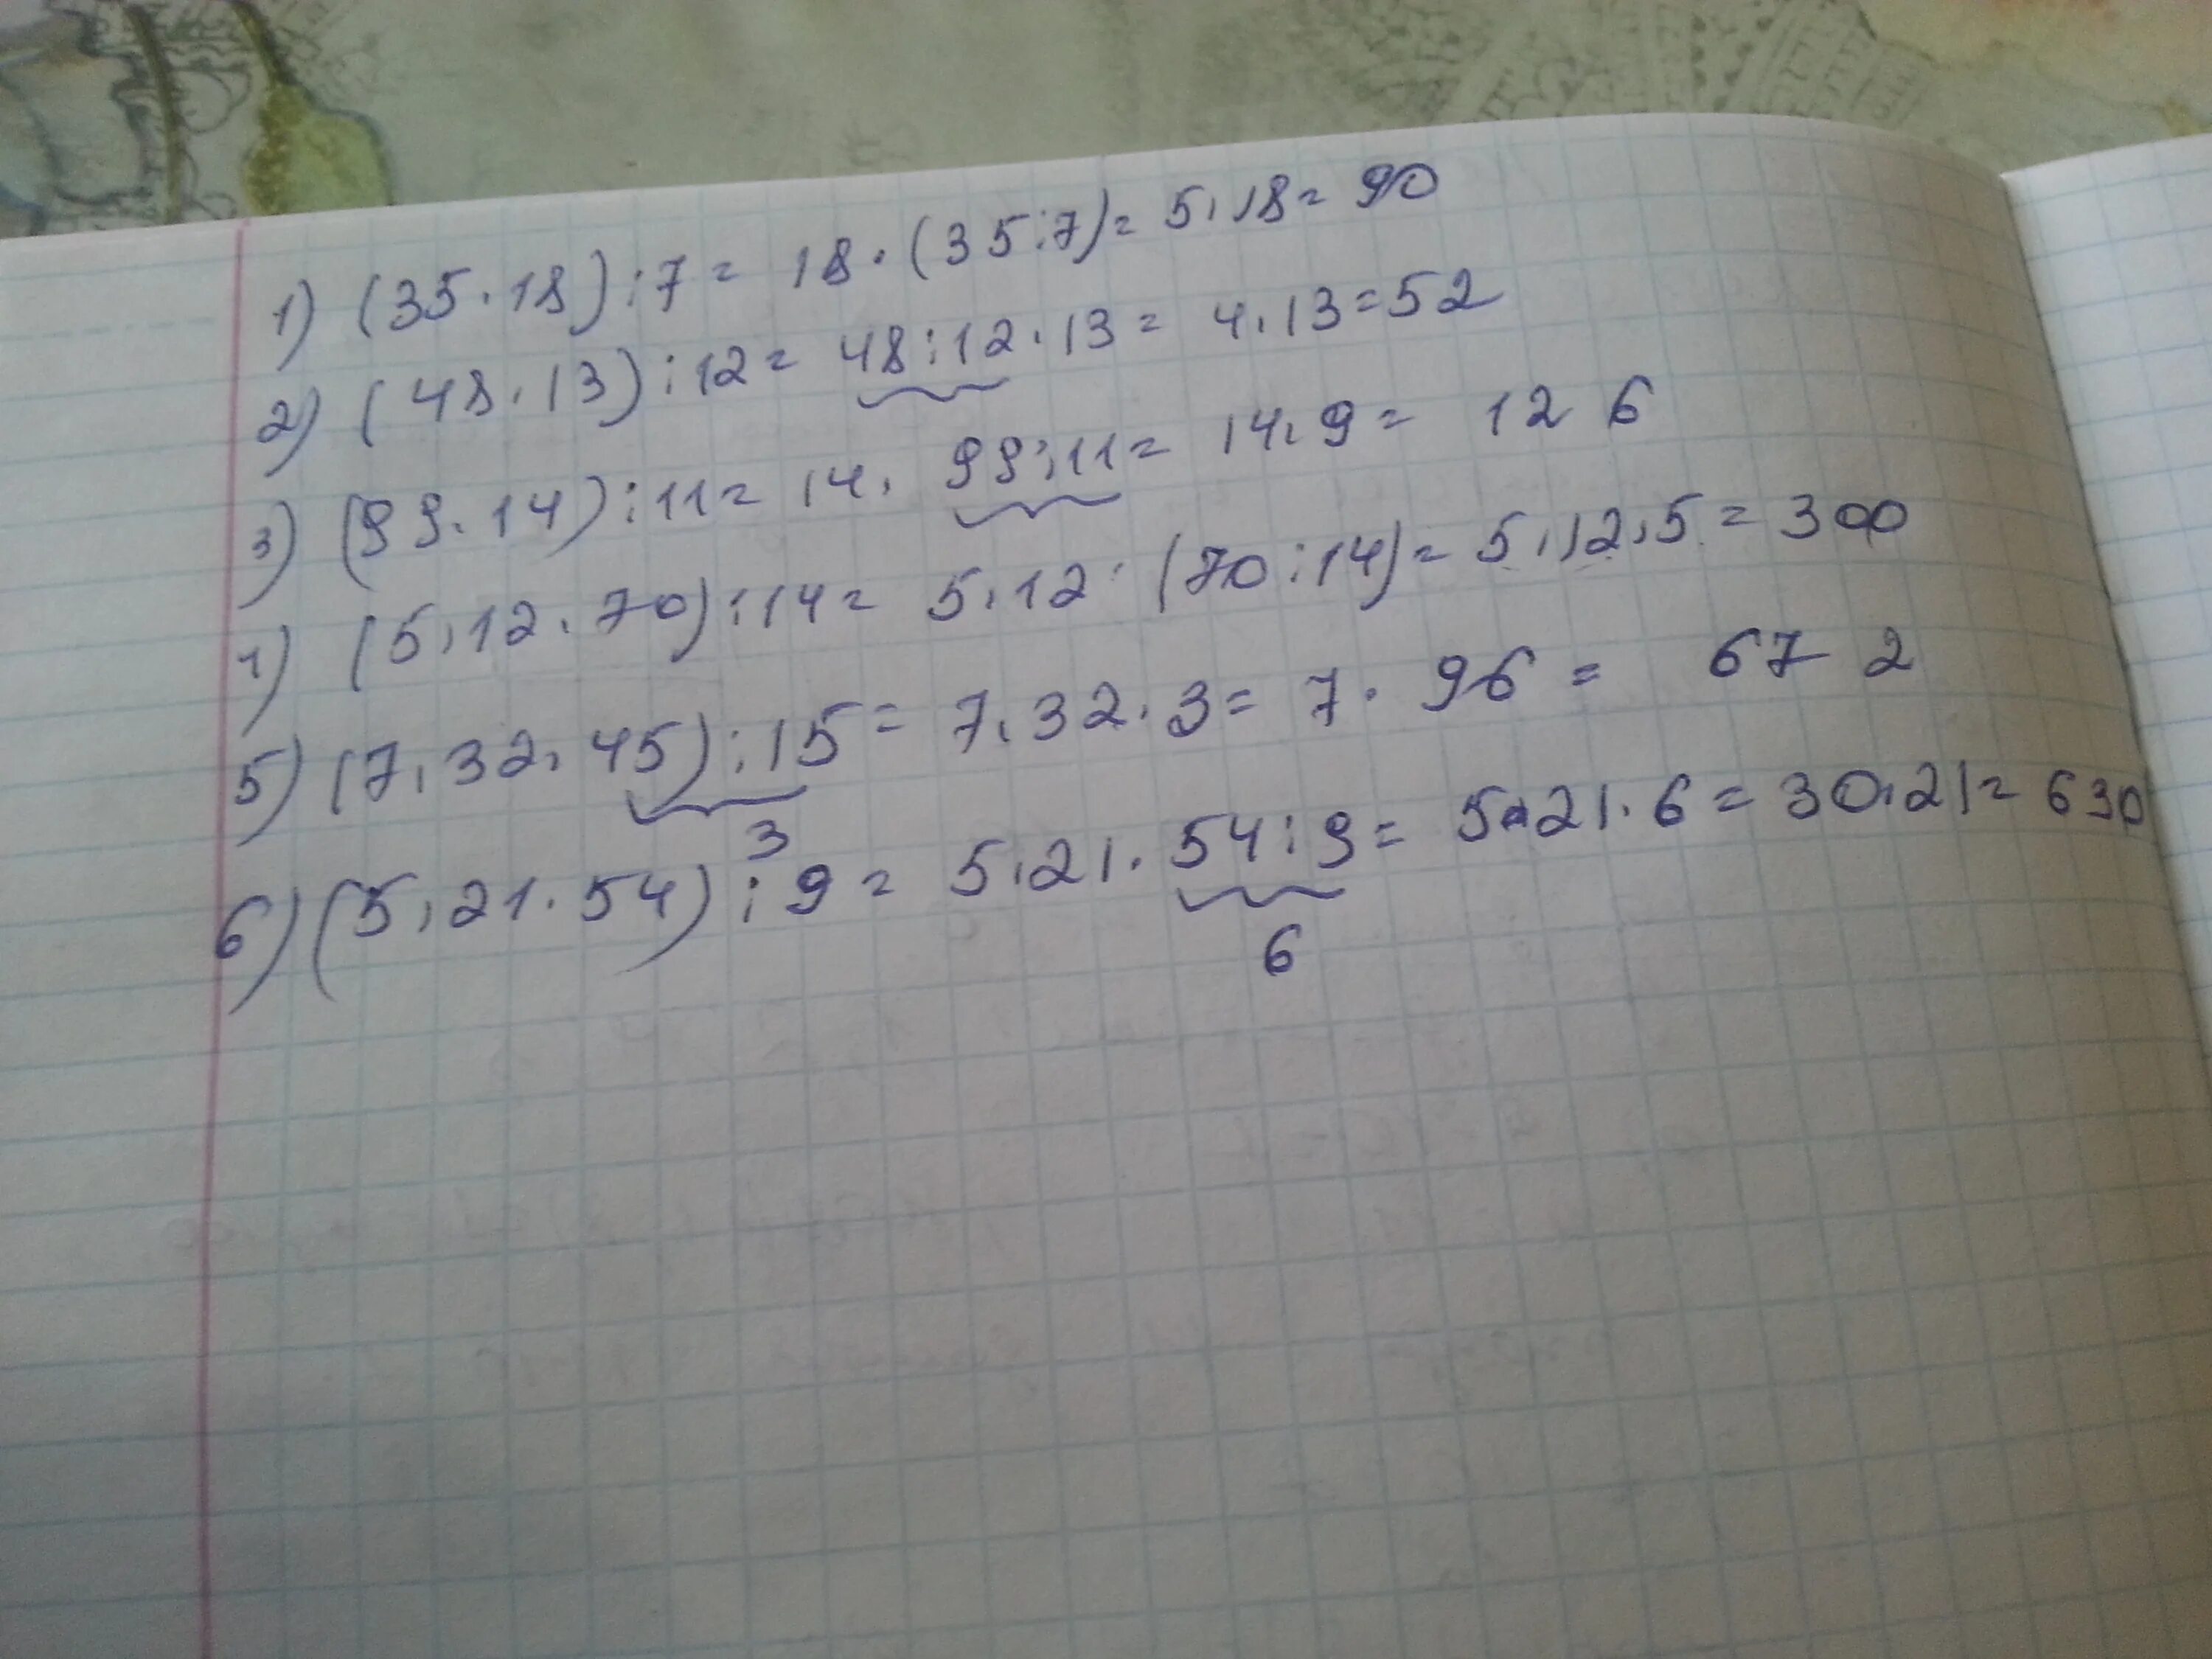 1) (35·18):7= 18·(35:7)= 5·18= 90
2) (48·13):12= 48:12·13= 4·13=52
3) (99·14):11= 14· 99:11= 14·9= 126
4) (5·12·70):14= 5·12·(70:14)= 5·12·5= 300
5) (7·32·45):15= 7·32·3= 7·96= 672
3
6) (5·21·54):9= 5·21·54:9= 5·21·6= 30·21= 630
6